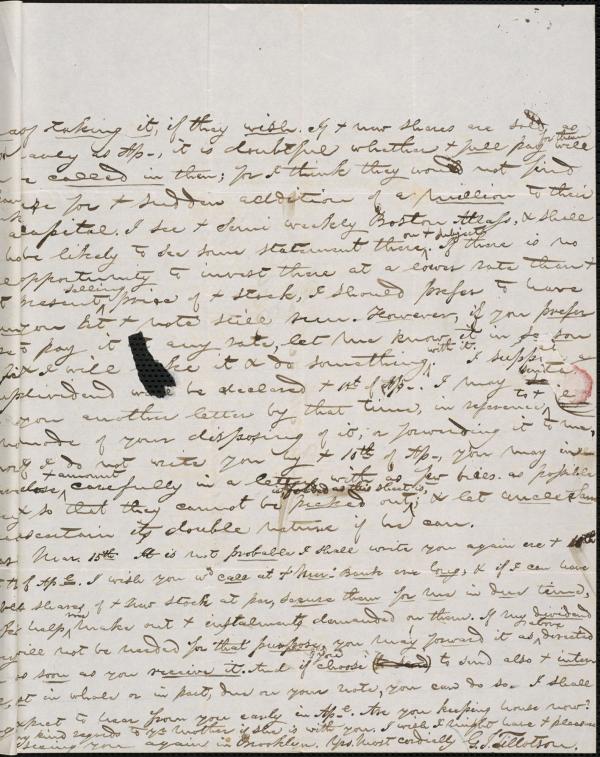 of taking it, if they wish. If + new shares are sold, as
early as Ap-, it is doubtful whether + full pay for them will
be called in then; for I think they would not find
use for + sudden addition of a million to their
capital. I see + Semi weekly Boston Atlas, & shall
be likely to see some statement there on + subject. If there is no
opportunity to invest there at a lower rate than +
present selling price of + stock, I should prefer to have
you let + note still run. However, if you prefer
to pay it any rate, let me know it in so you
& I will it & do something with it. I suppose a
dividend will be declared + 10th of Ap-. I may write
you another letter by that time, in reference to +
of your disposing of it, or forwarding it to me.
I do not write you by + 10th of Ap-, you may in-
close + amount carefully in a letter with as few bills as possible
& so that they cannot be picked out; & let Uncle Sam
ascertain its double nature if he can.
Mar. 15th It is not probable I shall write you again ere + 10th
of Apl. I wish you wd call at + Mer. Bank ere long & if I can have
shares of + new stock at par, secure them for me in due time,
help you make out + instalments demanded on them. If my dividend
will not be needed for that purpose, you may forward it as above directed
as soon as you receive it. And if you choose to send also + inter-
est in whole or in part, due on your note, you can do so. I shall
expect to hear from you early in Apl. Are you keeping house now?
my kind regards to yr mother if she is with you. I wish I might have + pleasure
seeing you again in Brooklyn. Yrs. most cordially G. J. Tillotson.